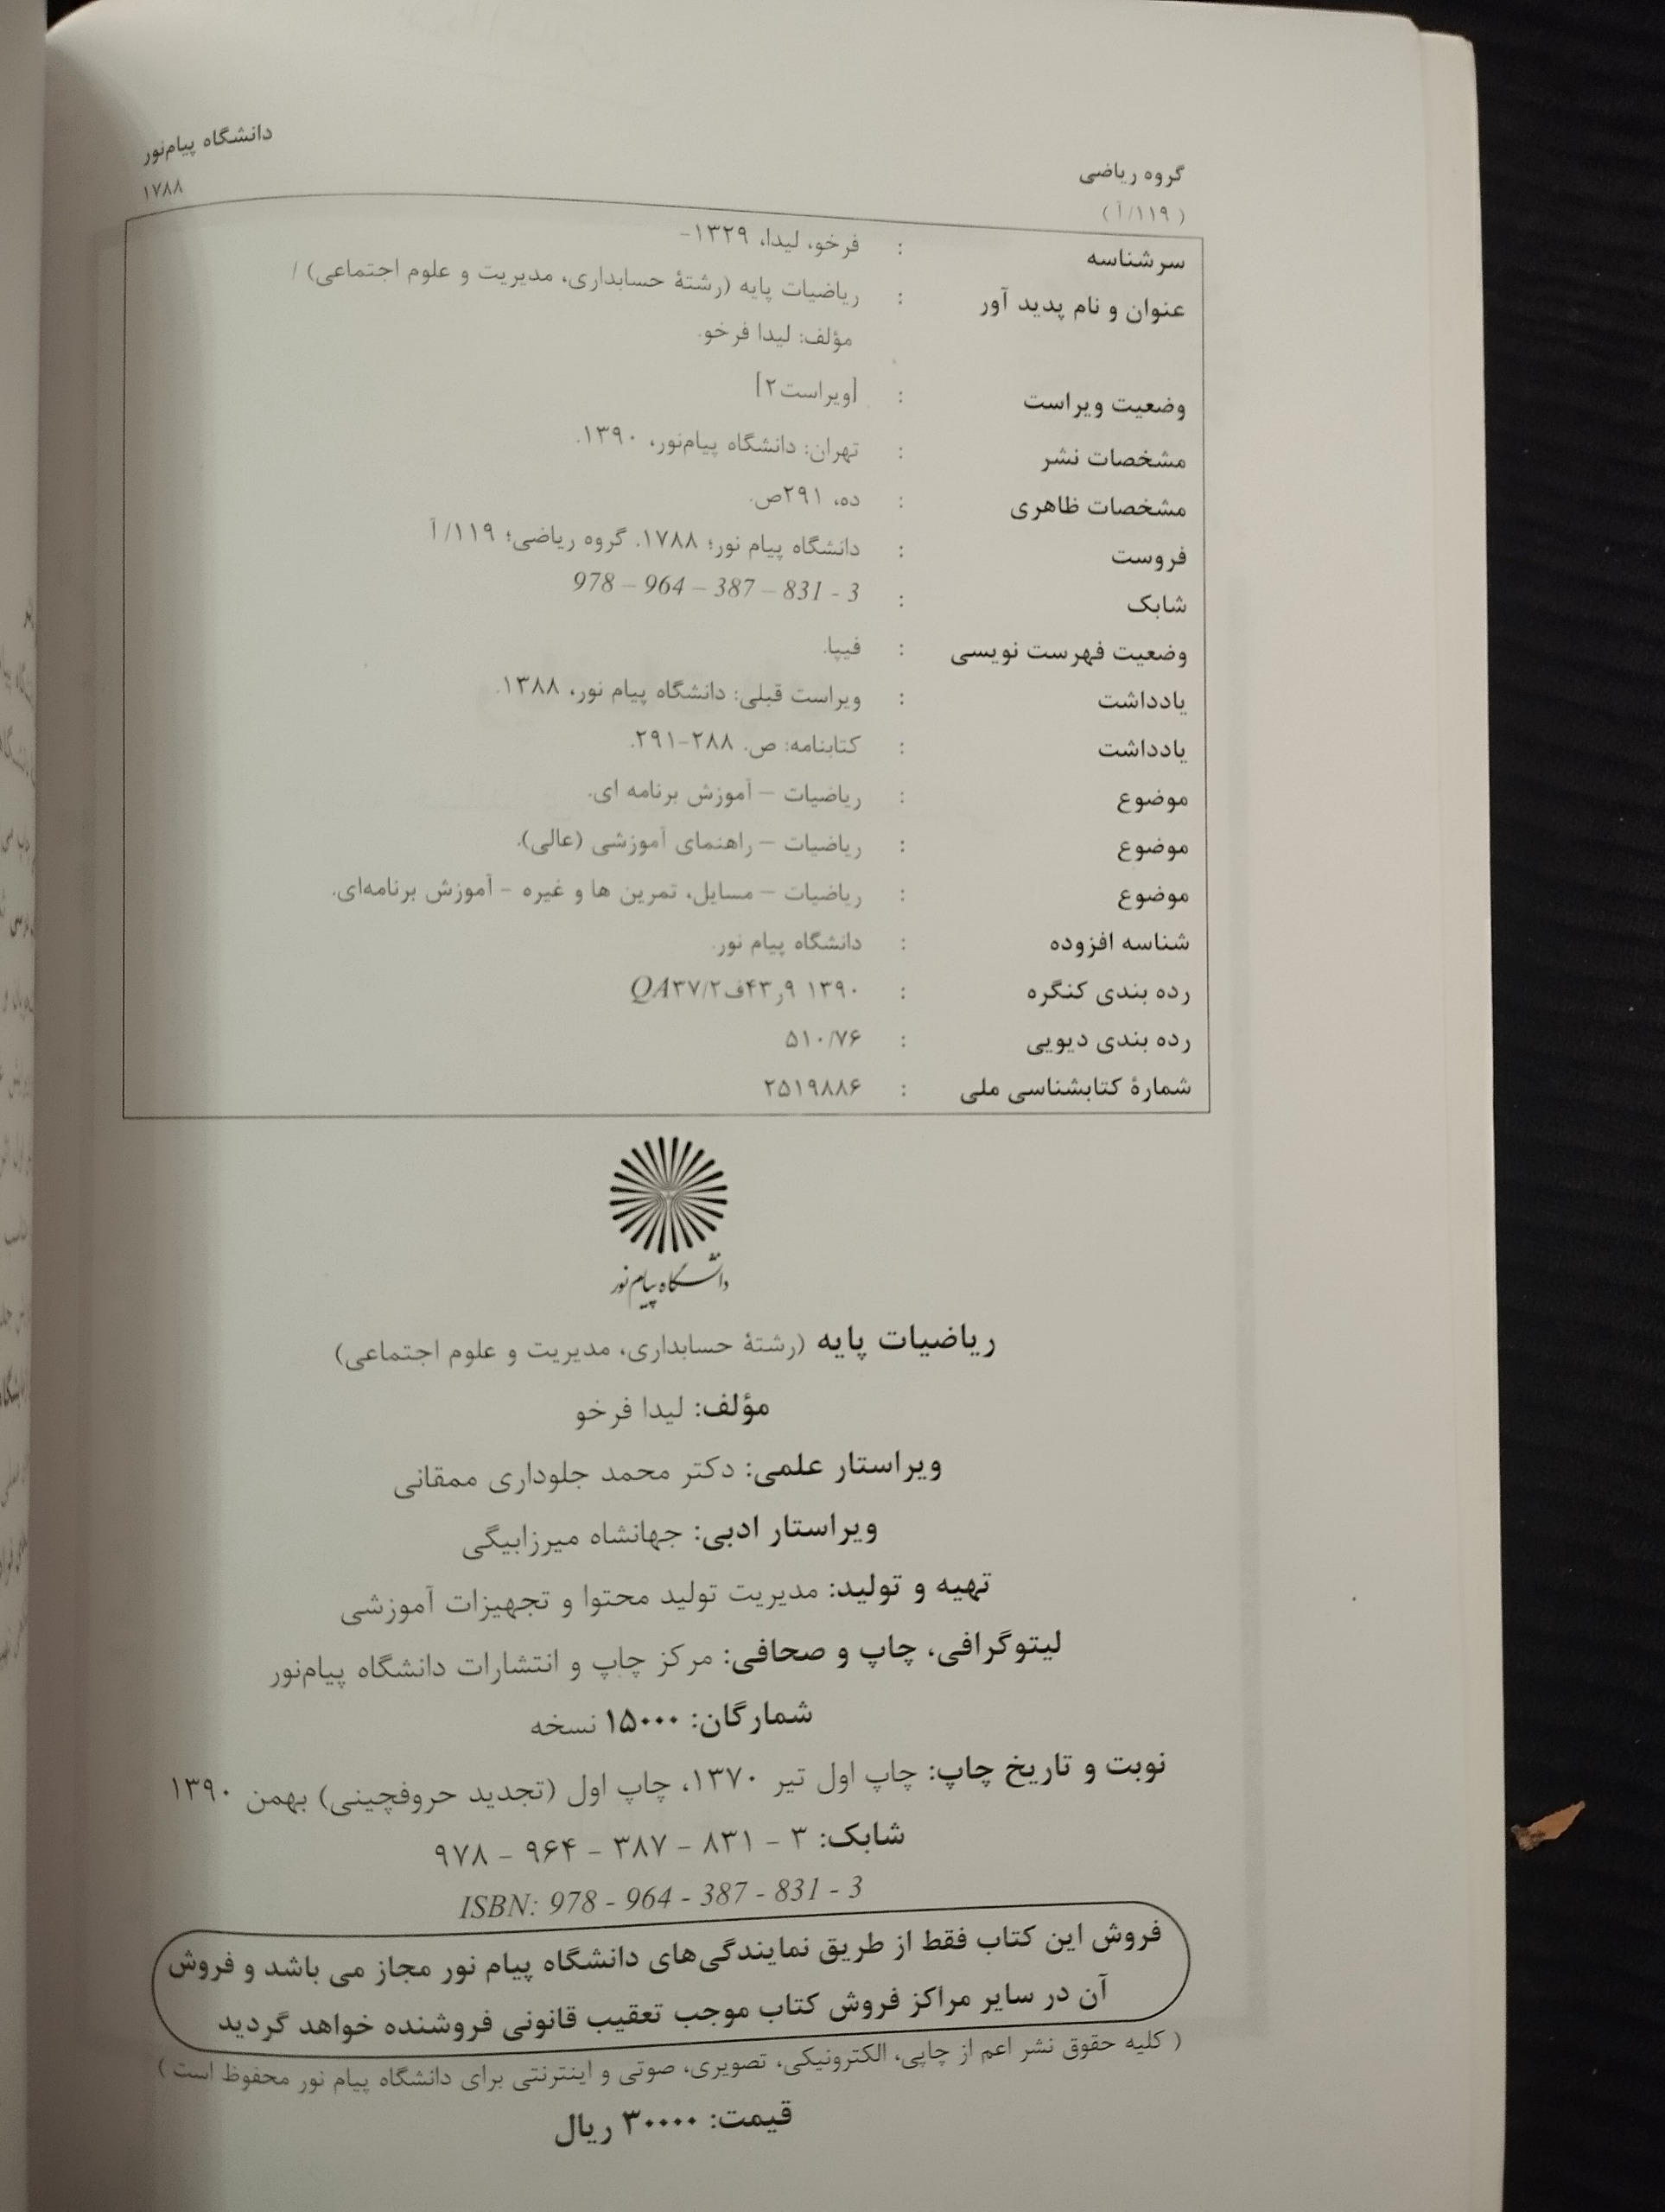 گروه ریاضی
دانشگاه پیام‌نور
( ۱۱۹/ آ )
۱۷۸۸
سرشناسه : فرخو، لیدا، ۱۳۲۹-
عنوان و نام پدید آور : ریاضیات پایه (رشتهٔ حسابداری، مدیریت و علوم اجتماعی) /
مؤلف: لیدا فرخو.
وضعیت ویراست : [ویراست۲]
مشخصات نشر : تهران: دانشگاه پیام‌نور، ۱۳۹۰.
مشخصات ظاهری : ده، ۲۹۱ص.
فروست : دانشگاه پیام نور؛ ۱۷۸۸. گروه ریاضی؛ ۱۱۹/ آ
شابک : 978 – 964 – 387 – 831 - 3
وضعیت فهرست نویسی : فیپا.
یادداشت : ویراست قبلی: دانشگاه پیام نور، ۱۳۸۸.
یادداشت : کتابنامه: ص. ۲۸۸-۲۹۱.
موضوع : ریاضیات – آموزش برنامه ای.
موضوع : ریاضیات – راهنمای آموزشی (عالی).
موضوع : ریاضیات – مسایل، تمرین ها و غیره - آموزش برنامه‌ای.
شناسه افزوده : دانشگاه پیام نور.
رده بندی کنگره : ۱۳۹۰ ۹ر۴۳ف/۲QA۳۷
رده بندی دیویی : ۵۱۰/۷۶
شمارهٔ کتابشناسی ملی : ۲۵۱۹۸۸۶
دانشگاه پیام نور
ریاضیات پایه (رشتهٔ حسابداری، مدیریت و علوم اجتماعی)
مؤلف: لیدا فرخو
ویراستار علمی: دکتر محمد جلوداری ممقانی
ویراستار ادبی: جهانشاه میرزابیگی
تهیه و تولید: مدیریت تولید محتوا و تجهیزات آموزشی
لیتوگرافی، چاپ و صحافی: مرکز چاپ و انتشارات دانشگاه پیام‌نور
شمارگان: ۱۵۰۰۰ نسخه
نوبت و تاریخ چاپ: چاپ اول تیر ۱۳۷۰، چاپ اول (تجدید حروفچینی) بهمن ۱۳۹۰
شابک: ۳ - ۸۳۱ - ۳۸۷ - ۹۶۴ - ۹۷۸
ISBN: 978 - 964 - 387 - 831 - 3
فروش این کتاب فقط از طریق نمایندگی‌های دانشگاه پیام نور مجاز می باشد و فروش
آن در سایر مراکز فروش کتاب موجب تعقیب قانونی فروشنده خواهد گردید
( کلیه حقوق نشر اعم از چاپی، الکترونیکی، تصویری، صوتی و اینترنتی برای دانشگاه پیام نور محفوظ است )
قیمت: ۳۰۰۰۰ ریال